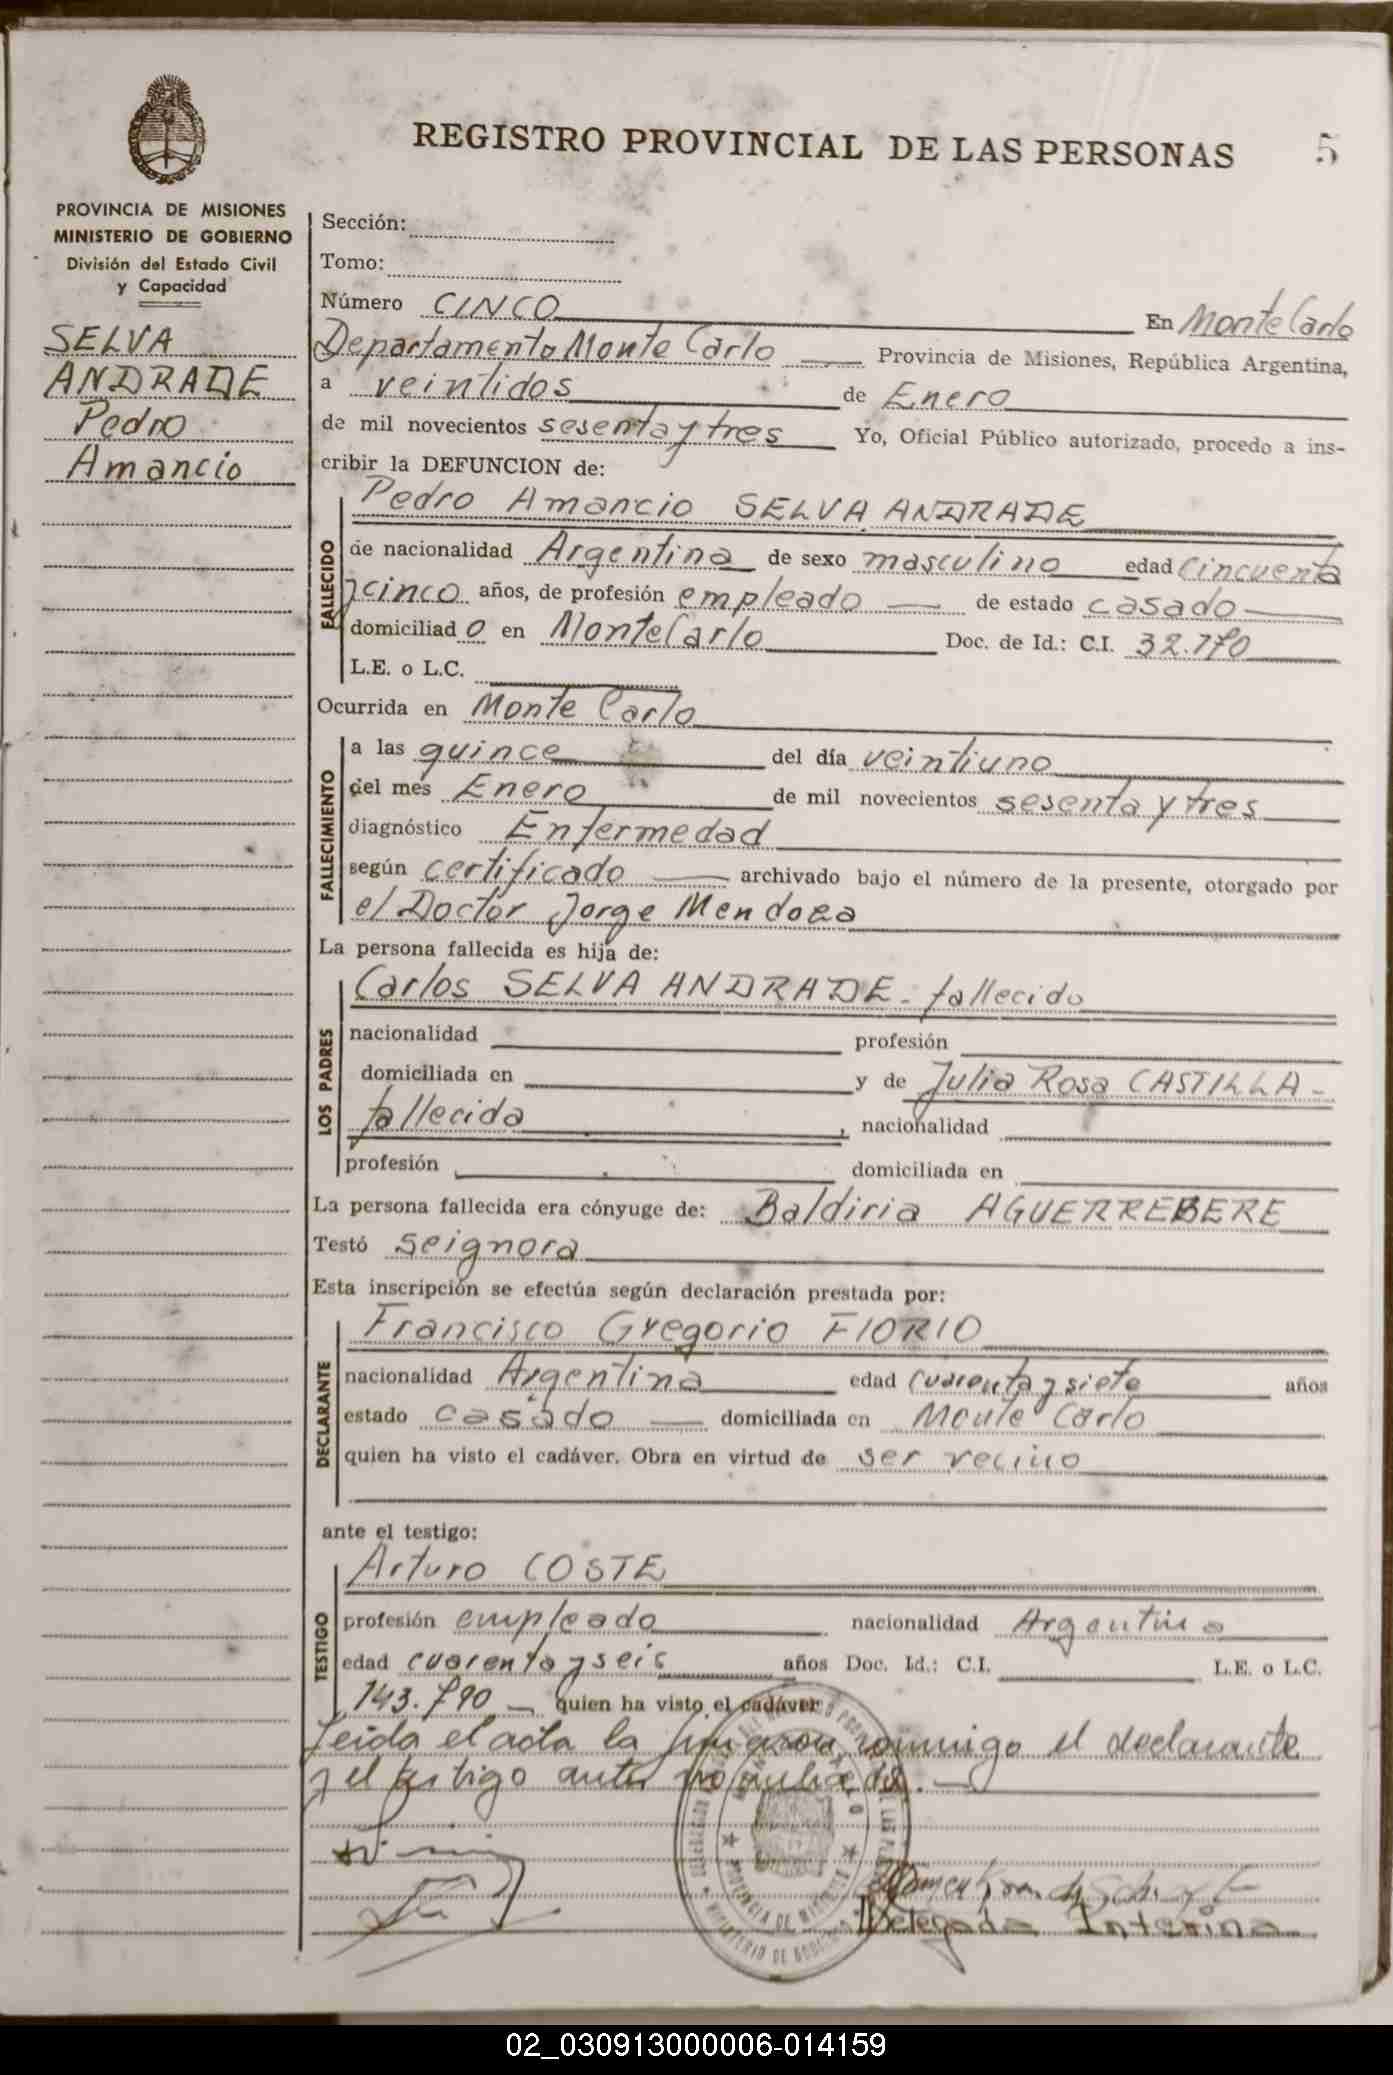 REGISTRO PROVINCIAL DE LAS PERSONAS 5
PROVINCIA DE MISIONES
MINISTERIO DE GOBIERNO
División del Estado Civil
y Capacidad
SELVA
ANDRADE
Pedro
Amancio
Sección:
Tomo:
Número CINCO En Monte Carlo
Departamento Monte Carlo Provincia de Misiones, República Argentina,
a veintidos de Enero
de mil novecientos sesenta y tres Yo, Oficial Público autorizado, procedo a ins-
cribir la DEFUNCION de:
FALLECIDO
Pedro Amancio SELVA ANDRADE
de nacionalidad Argentina de sexo masculino edad cincuenta
y cinco años, de profesión empleado de estado casado
domiciliad o en Monte Carlo Doc. de Id.: C.I. 32.170
L.E. o L.C.
Ocurrida en Monte Carlo
FALLECIMIENTO
a las quince del día veintiuno
del mes Enero de mil novecientos sesenta y tres
diagnóstico Enfermedad
según certificado archivado bajo el número de la presente, otorgado por
el Doctor Jorge Mendoza
La persona fallecida es hija de:
LOS PADRES
Carlos SELVA ANDRADE - fallecido
nacionalidad profesión
domiciliada en y de Julia Rosa CASTILLA -
fallecida , nacionalidad
profesión domiciliada en
La persona fallecida era cónyuge de: Baldiria AGUERREBERE
Testó se ignora
Esta inscripción se efectúa según declaración prestada por:
DECLARANTE
Francisco Gregorio FIORIO
nacionalidad Argentina edad cuarenta y siete años
estado casado domiciliada en Monte Carlo
quien ha visto el cadáver. Obra en virtud de ser vecino
ante el testigo:
TESTIGO
Arturo COSTE
profesión empleado nacionalidad Argentina
edad cuarenta y seis años Doc. Id.: C.I. L.E. o L.C.
143.790 quien ha visto el cadáver
Leida el acta la firmaron conmigo el declarante
y el testigo antes nombrados. -
PROVINCIA DE MISIONES
MINISTERIO DE GOBIERNO
Delegada Interina
02_030913000006-014159